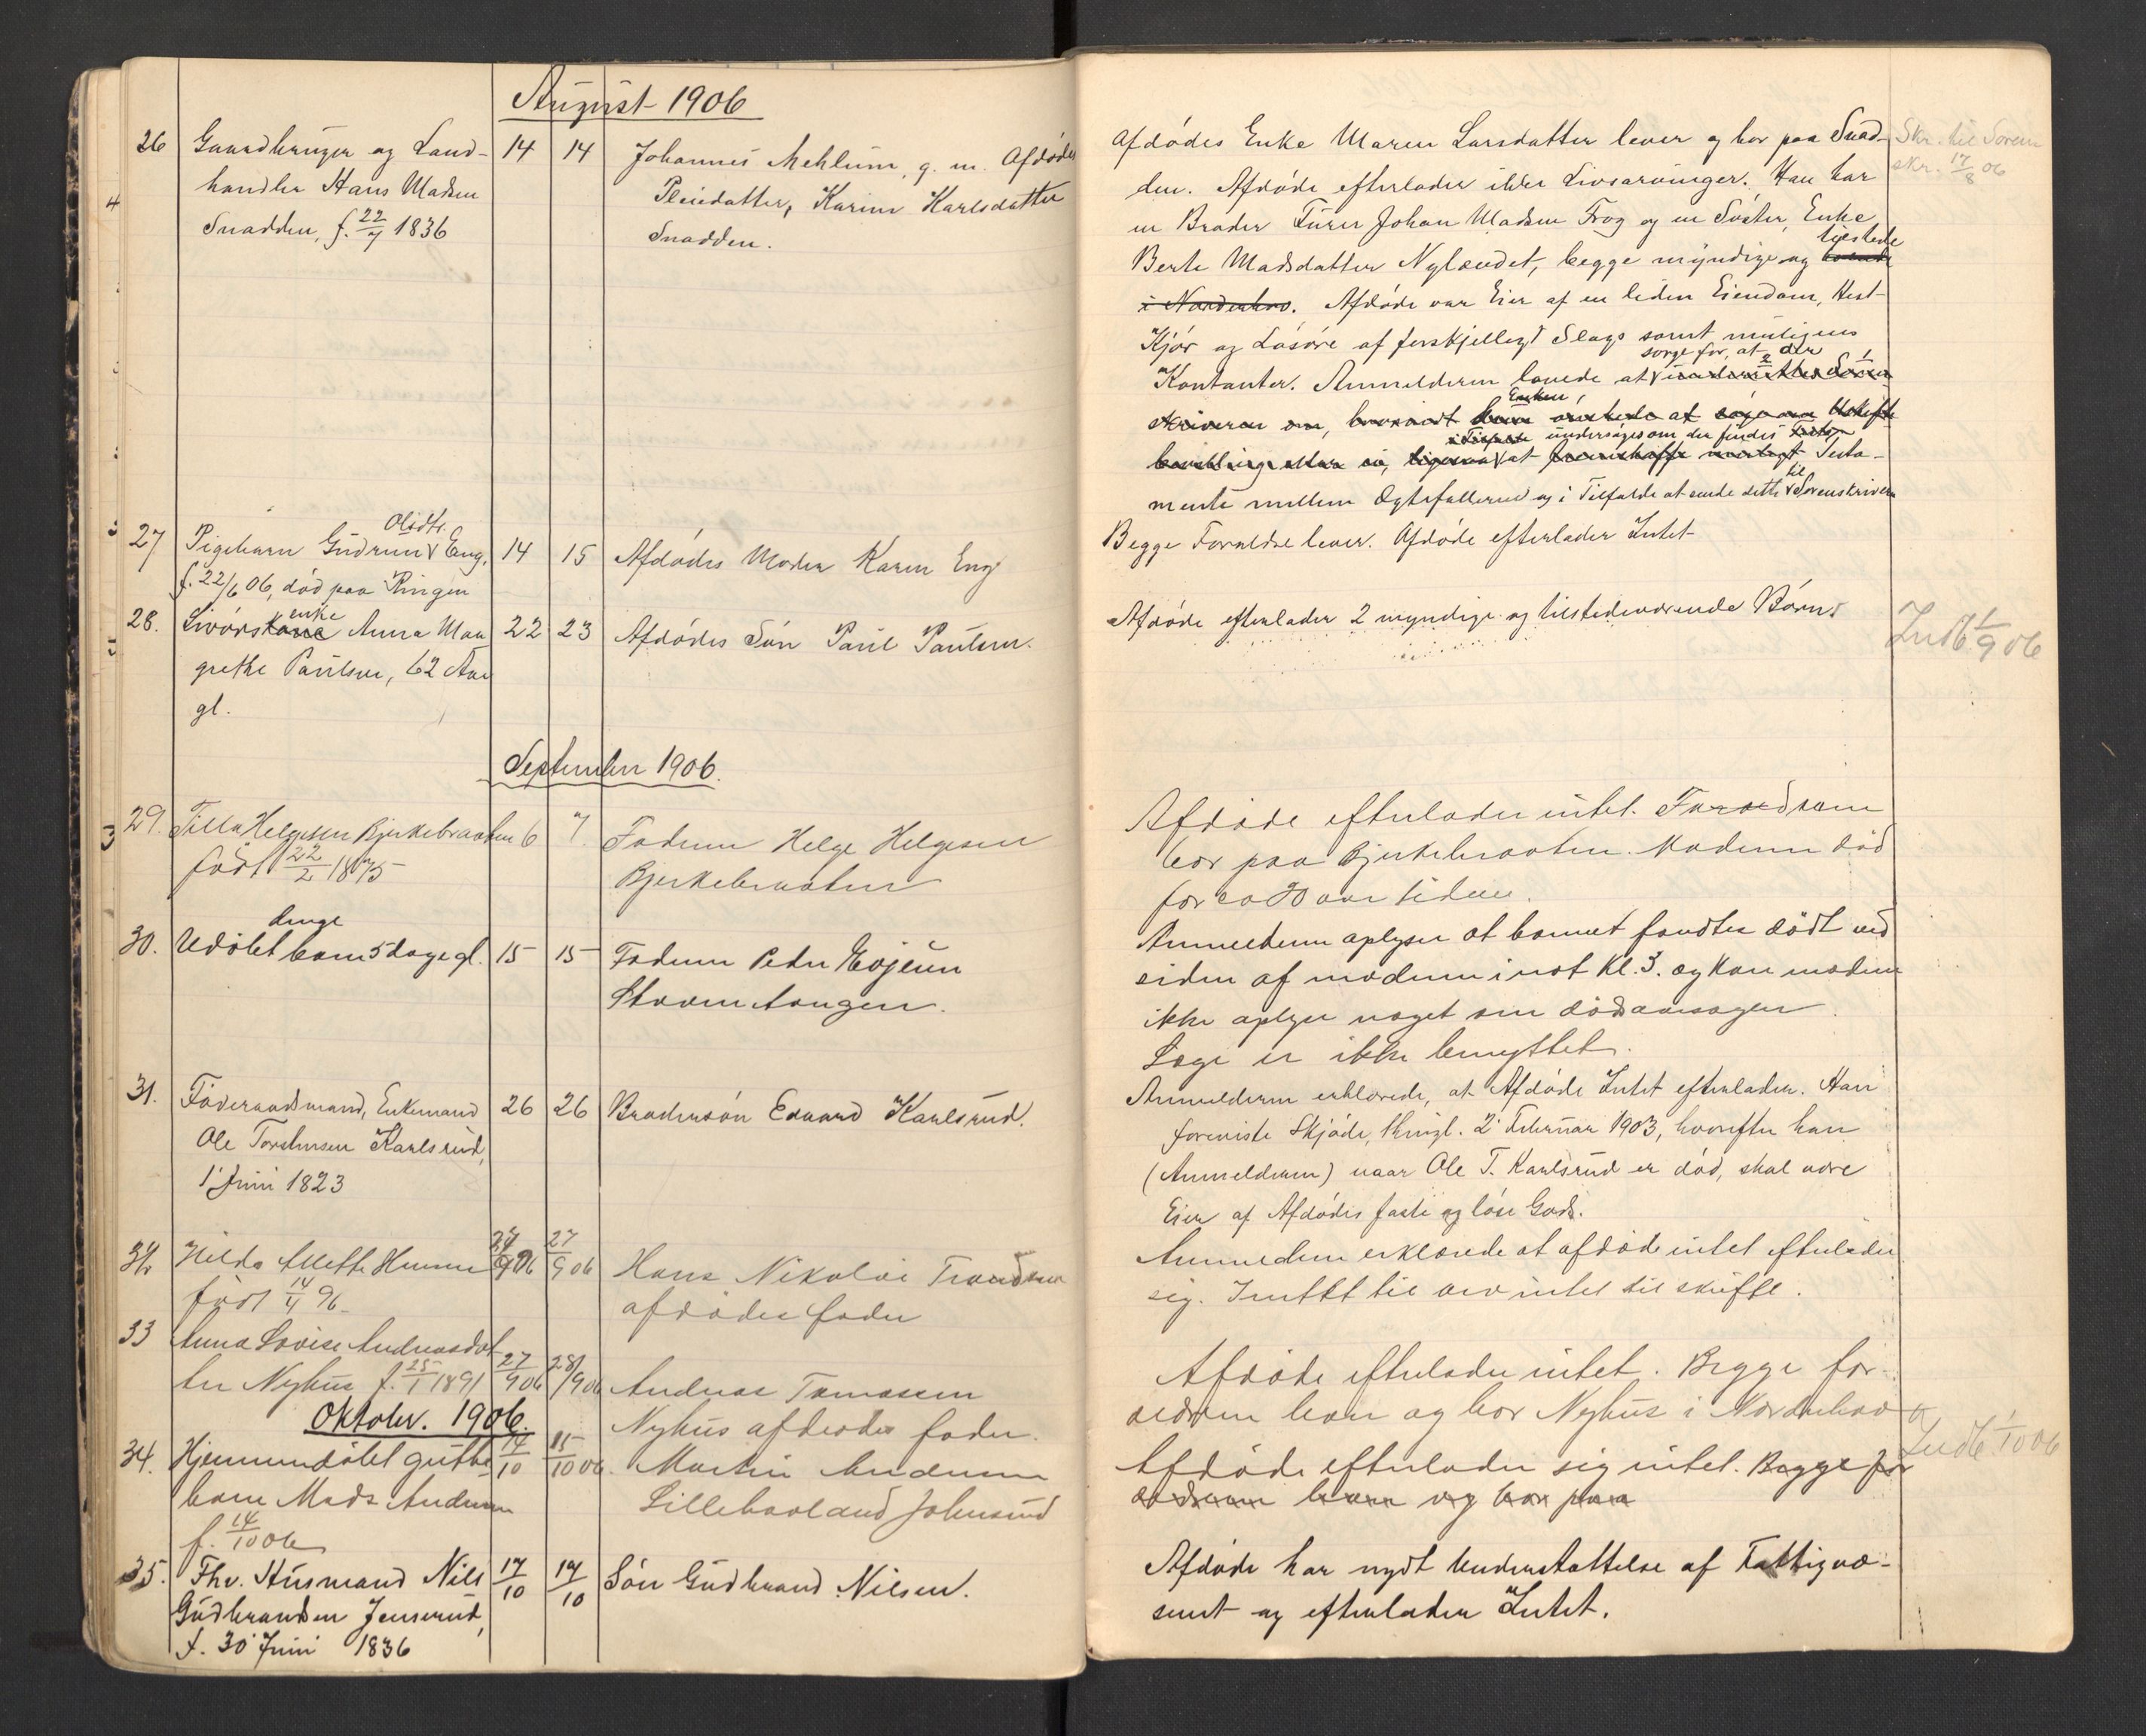 August 1906
26 Gaardbruger og Land-
handler Hans Madsen
Snadden, f. 22/7 1836
14 14
Johannes Mehlum, g. m. Afdødes
Pleiedatter, Karine Karlsdatter
Snadden.
27 Pigebarn Gudrun Olsdtr. Eng,
f. 22/6 06, død paa Ringen
14 15
Afdødes Moder Karen Eng
28. enke Anna Mar
grethe Paulsen, 62 Aar
gl.
22 23
Afdødes Søn Paul Paulsen.
September 1906.
29. Tilla Helgesen Bjerkebraaten
født 22/2 1875
6 7.
Faderen Helge Helgesen
Bjerkebraaten
30. Udøbt drenge barn 5 dage gl.
15 15
Faderen Peder
31. Føderaadsmand, Enkemand
Ole Torstensen Karlsrud,
1' Juni 1823
26 26
Brodersøn Edvard Karlsrud.
32 Hilda
født 14/4 96
27/9 06
Hans Nikolai
afdødes fader
33 Anna Lovise Andreasdat
ter Nyhus f. 25/1 1891
27/9 06 28/9 06
Andreas Tomassen
Nyhus afdødes fader.
Oktober. 1906.
34. Hjemmedøbt gutte
barn Mads Andersen
f. 14/10 06
14/10 15/10 06.
Martin Andersen
Lillehaaland
35. Fhv. Husmand Nils
Gudbrandsen Jenserud,
f. 30' Juni 1836
17/10 19/10
Søn Gudbrand Nilsen.
Afdødes Enke Maren Larsdatter lever og bor paa Snad-
den. Afdøde efterlader ikke Livsarvinger. Han har
en Broder Furer Johan Madsen Frog og en Søster, Enke
Berte Madsdatter Nylændet, begge myndige og tilstede
i Norderhov. Afdøde var Eier af en liden Eiendom, Hest
Kjør og Løsøre af forskjelligt Slags samt muligens
Kontanter. Anmelderen lovede at sørge for, at der
undersøges om der findes Testa-
mente mellem Ægtefællerne og i Tilfælde at sende dette til Sorenskriveren
Begge Forældre lever. Afdøde efterlader Intet
Afdøde efterlader 2 myndige og tilstedeværende Børn.
Afdøde efterlader intet. Faren som
bor paa Bjerkebraaten. Moderen død
for ca 20 aar siden.
Anmelderen oplyser at barnet fandtes dødt ved
siden af moderen i nat Kl. 3. og kan moderen
ikke oplyse noget om dødsaarsagen.
Læge er ikke benyttet.
Anmelderen erklærede, at Afdøde Intet efterlader. Han
foreviste Skjøde, thingl. 2' Februar 1903, hvorefter han
(Anmelderen) naar Ole T. Karlsrud er død, skal være
Eier af Afdødes faste og løse Gods.
Anmelderen erklærede at afdøde intet efterlader
sig. Inttet til arv intet til skifte.
Afdøde efterlader intet. Begge for-
ældrene lever og bor Nyhus i Norderhov
Afdøde efterlader sig intet. Begge for
ældrene lever og bor paa
Afdøde har nydt Understøttelse af Fattigvæ-
senet og efterlader Intet.
Skr. til Soren
skr. 17/8 06
Indb 1/9 06
Indb 1/10 06